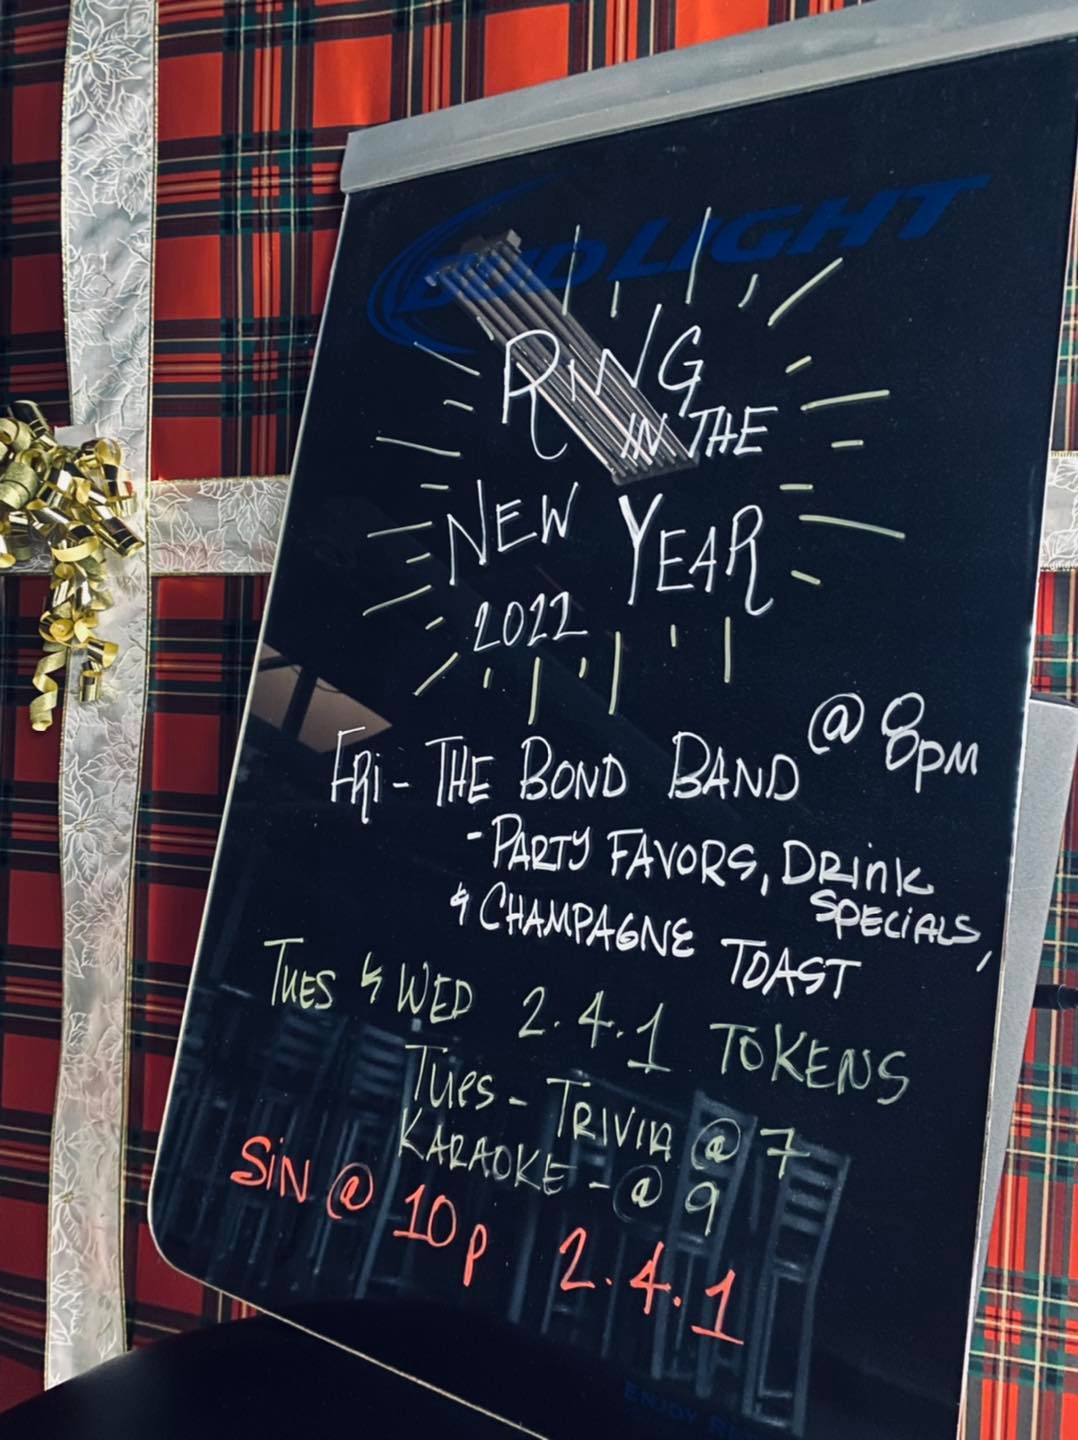 BUD LIGHT
RING
IN THE
NEW YEAR
2022
@ 8PM
FRI - THE BOND BAND
- PARTY FAVORS, DRINK
SPECIALS,
& CHAMPAGNE TOAST
TUES & WED 2.4.1 TOKENS
TUES - TRIVIA @ 7
KARAOKE - @ 9
SIN @ 10P 2.4.1
ENJOY